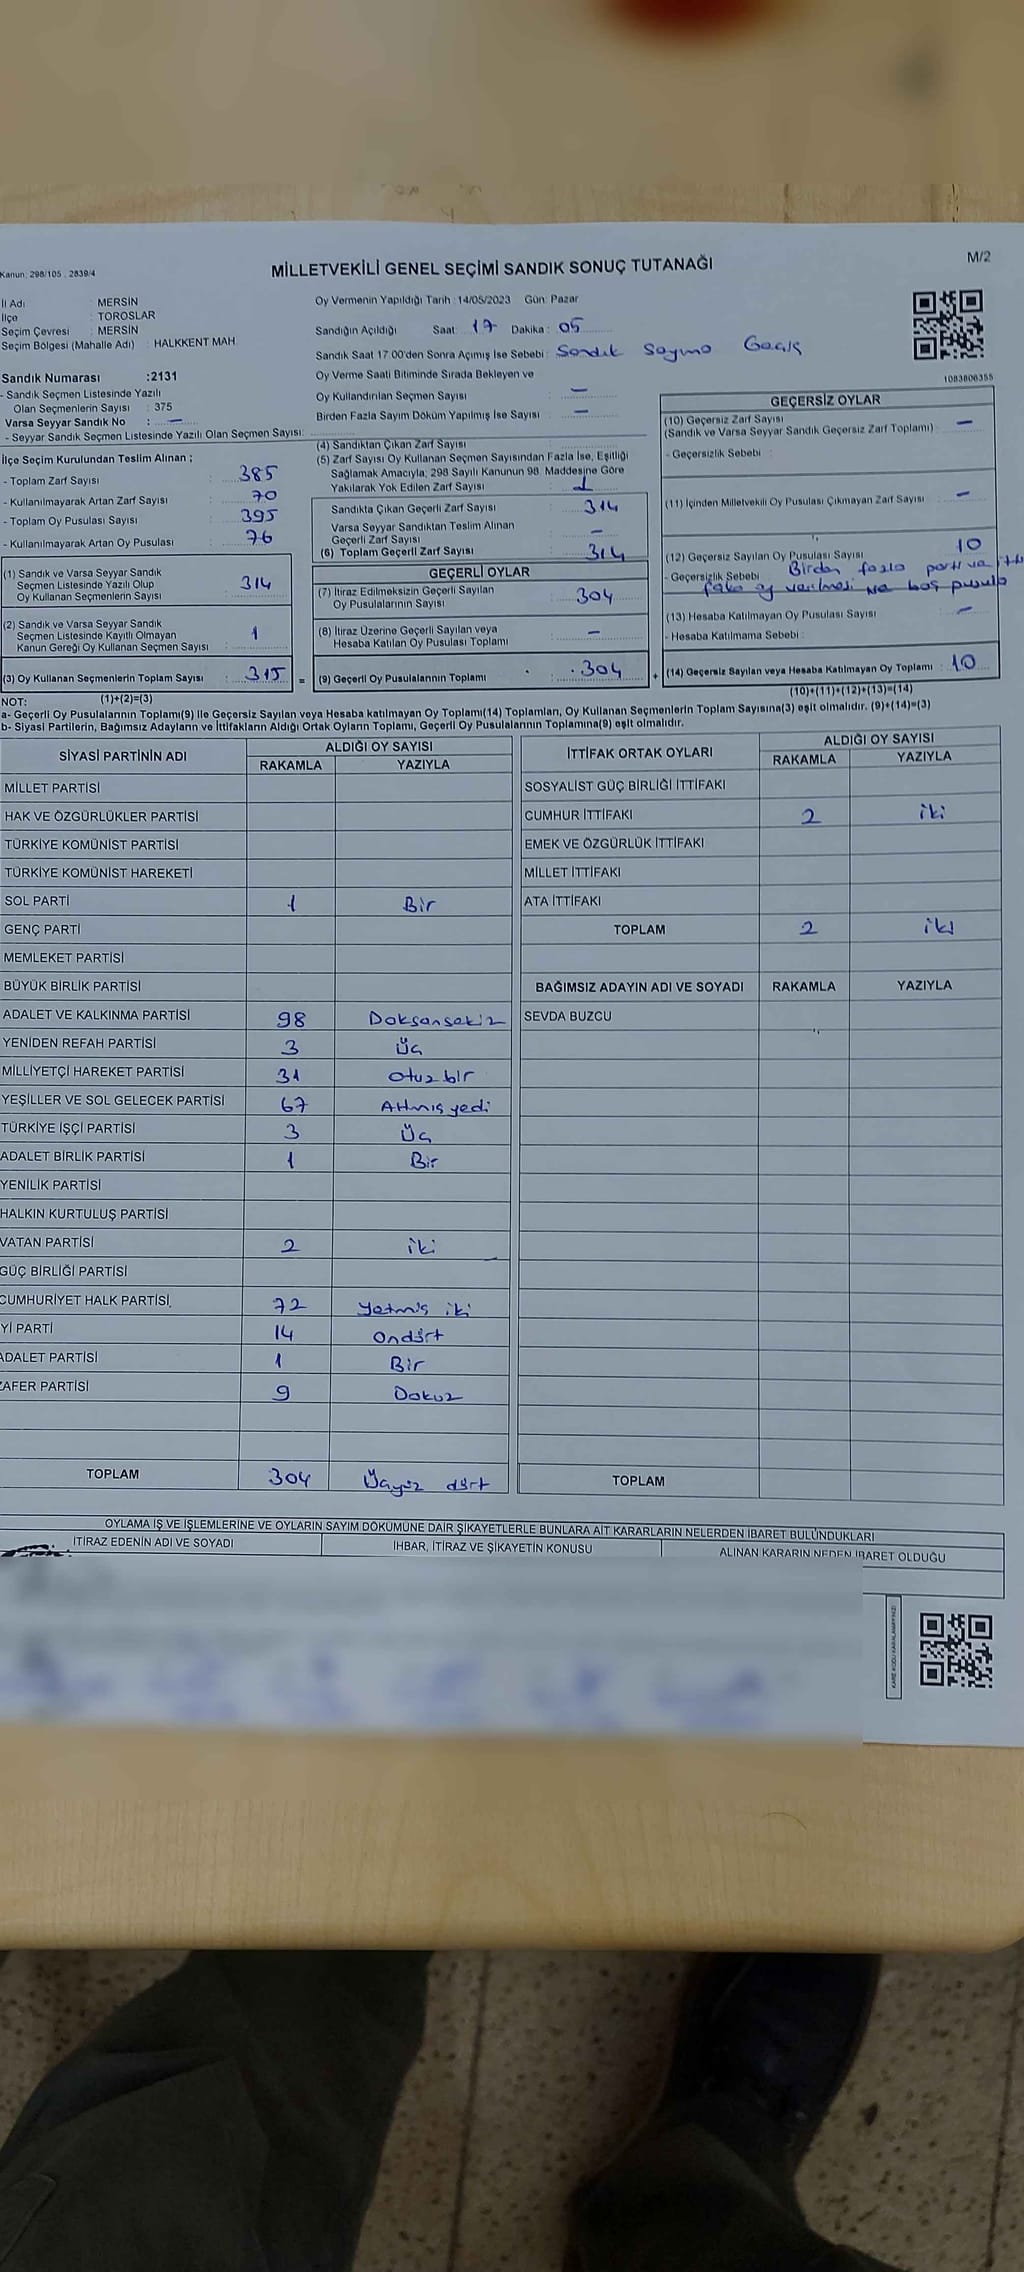 Kanun: 298/105 , 2839/4
MİLLETVEKİLİ GENEL SEÇİMİ SANDIK SONUÇ TUTANAĞI
M/2
İl Adı : MERSİN
İlçe : TOROSLAR
Seçim Çevresi : MERSİN
Seçim Bölgesi (Mahalle Adı) : HALKKENT MAH.
Sandık Numarası :2131
- Sandık Seçmen Listesinde Yazılı
Olan Seçmenlerin Sayısı : 375
Varsa Seyyar Sandık No : —
- Seyyar Sandık Seçmen Listesinde Yazılı Olan Seçmen Sayısı:
Oy Vermenin Yapıldığı Tarih : 14/05/2023 Gün: Pazar
Sandığın Açıldığı Saat: 17 Dakika: 05
Sandık Saat 17:00'den Sonra Açımış İse Sebebi : Sandık Sayımı
Oy Verme Saati Bitiminde Sırada Bekleyen ve
Oy Kullandırılan Seçmen Sayısı : —
Birden Fazla Sayım Döküm Yapılmış İse Sayısı : —
1083806355
İlçe Seçim Kurulundan Teslim Alınan ;
- Toplam Zarf Sayısı : 385
- Kullanılmayarak Artan Zarf Sayısı : 70
- Toplam Oy Pusulası Sayısı : 395
- Kullanılmayarak Artan Oy Pusulası : 76
(1) Sandık ve Varsa Seyyar Sandık
Seçmen Listesinde Yazılı Olup
Oy Kullanan Seçmenlerin Sayısı : 314
(2) Sandık ve Varsa Seyyar Sandık
Seçmen Listesinde Kayıtlı Olmayan
Kanun Gereği Oy Kullanan Seçmen Sayısı : 1
(3) Oy Kullanan Seçmenlerin Toplam Sayısı : 315 =
(1)+(2)=(3)
(4) Sandıktan Çıkan Zarf Sayısı :
(5) Zarf Sayısı Oy Kullanan Seçmen Sayısından Fazla İse, Eşitliği
Sağlamak Amacıyla, 298 Sayılı Kanunun 98. Maddesine Göre
Yakılarak Yok Edilen Zarf Sayısı : 1
Sandıkta Çıkan Geçerli Zarf Sayısı : 314
Varsa Seyyar Sandıktan Teslim Alınan
Geçerli Zarf Sayısı : —
(6) Toplam Geçerli Zarf Sayısı : 314
GEÇERLİ OYLAR
(7) İtiraz Edilmeksizin Geçerli Sayılan
Oy Pusulalarının Sayısı : 304
(8) İtiraz Üzerine Geçerli Sayılan veya
Hesaba Katılan Oy Pusulası Toplamı : —
(9) Geçerli Oy Pusulalarının Toplamı : 304 +
GEÇERSİZ OYLAR
(10) Geçersiz Zarf Sayısı
(Sandık ve Varsa Seyyar Sandık Geçersiz Zarf Toplamı) : —
- Geçersizlik Sebebi :
(11) İçinden Milletvekili Oy Pusulası Çıkmayan Zarf Sayısı : —
(12) Geçersiz Sayılan Oy Pusulası Sayısı : 10
- Geçersizlik Sebebi : Birden fazla parti
fazla oy verilmesi ve boş pusula
(13) Hesaba Katılmayan Oy Pusulası Sayısı : —
- Hesaba Katılmama Sebebi :
(14) Geçersiz Sayılan veya Hesaba Katılmayan Oy Toplamı : 10
(10)+(11)+(12)+(13)=(14)
NOT:
a- Geçerli Oy Pusulalarının Toplamı(9) ile Geçersiz Sayılan veya Hesaba katılmayan Oy Toplamı(14) Toplamları, Oy Kullanan Seçmenlerin Toplam Sayısına(3) eşit olmalıdır. (9)+(14)=(3)
b- Siyasi Partilerin, Bağımsız Adayların ve İttifakların Aldığı Ortak Oyların Toplamı, Geçerli Oy Pusulalarının Toplamına(9) eşit olmalıdır.
SİYASİ PARTİNİN ADI ALDIĞI OY SAYISI
RAKAMLA YAZIYLA
MİLLET PARTİSİ
HAK VE ÖZGÜRLÜKLER PARTİSİ
TÜRKİYE KOMÜNİST PARTİSİ
TÜRKİYE KOMÜNİST HAREKETİ
SOL PARTİ 1 Bir
GENÇ PARTİ
MEMLEKET PARTİSİ
BÜYÜK BİRLİK PARTİSİ
ADALET VE KALKINMA PARTİSİ 98 Doksansekiz
YENİDEN REFAH PARTİSİ 3 Üç
MİLLİYETÇİ HAREKET PARTİSİ 31 otuz bir
YEŞİLLER VE SOL GELECEK PARTİSİ 67 Altmış yedi
TÜRKİYE İŞÇİ PARTİSİ 3 Üç
ADALET BİRLİK PARTİSİ 1 Bir
YENİLİK PARTİSİ
HALKIN KURTULUŞ PARTİSİ
VATAN PARTİSİ 2 iki
GÜÇ BİRLİĞİ PARTİSİ
CUMHURİYET HALK PARTİSİ 72 Yetmiş iki
Yİ PARTİ 14 Ondört
ADALET PARTİSİ 1 Bir
ZAFER PARTİSİ 9 Dokuz
TOPLAM 304 Üçyüz dört
İTTİFAK ORTAK OYLARI ALDIĞI OY SAYISI
RAKAMLA YAZIYLA
SOSYALİST GÜÇ BİRLİĞİ İTTİFAKI
CUMHUR İTTİFAKI 2 iki
EMEK VE ÖZGÜRLÜK İTTİFAKI
MİLLET İTTİFAKI
ATA İTTİFAKI
TOPLAM 2 iki
BAĞIMSIZ ADAYIN ADI VE SOYADI RAKAMLA YAZIYLA
SEVDA BUZCU
TOPLAM
OYLAMA İŞ VE İŞLEMLERİNE VE OYLARIN SAYIM DÖKÜMÜNE DAİR ŞİKAYETLERLE BUNLARA AİT KARARLARIN NELERDEN İBARET BULUNDUKLARI
İTİRAZ EDENİN ADI VE SOYADI İHBAR, İTİRAZ VE ŞİKAYETİN KONUSU ALINAN KARARIN NEDEN İBARET OLDUĞU